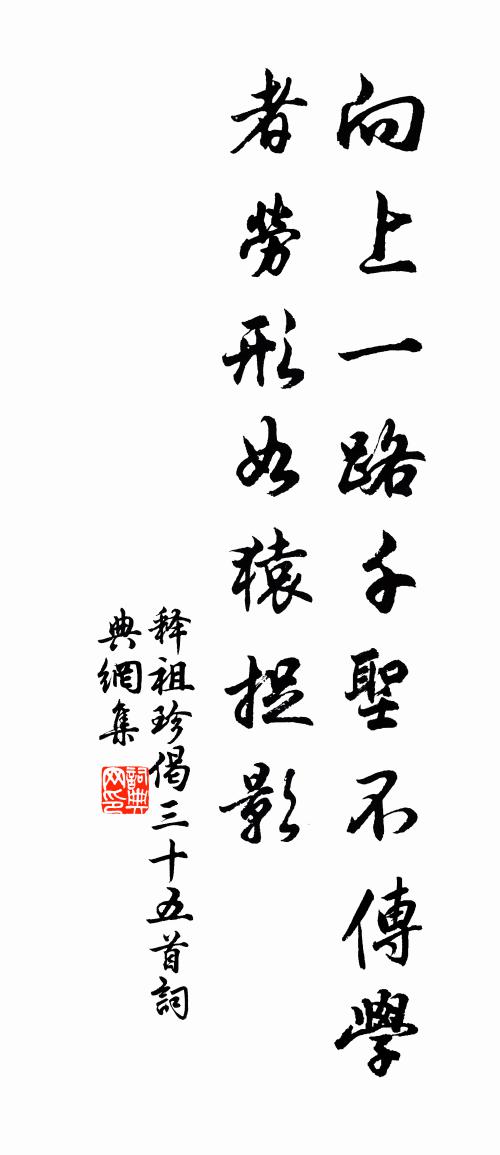 向上一路千聖不傳學
者勞形如猿捉影
释祖珍偈三十五首詞
典網集
詞典
网印